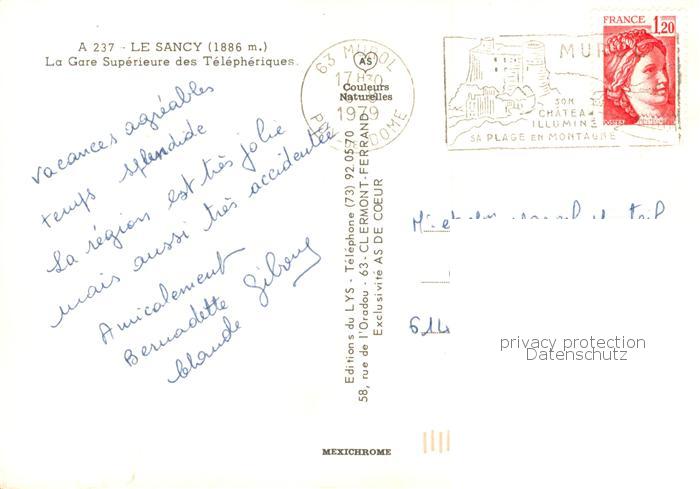 A 237 - LE SANCY (1886 m.)
La Gare Supérieure des Téléphériques.
63 MUROL
17 H 30
1979
PUY DE DOME
AS
Couleurs
Naturelles
MUR
SON
CHÂTEAU
ILLUMINÉ
SA PLAGE EN MONTAGNE
FRANCE
1,20
POSTES
vacances agréables
temps splendide
La région est très jolie
mais aussi très accidentée
Amicalement
Bernadette
Claude
Editions du LYS - Téléphone (73) 92.05.70
58, rue de l'Oradou - 63-CLERMONT-FERRAND
Exclusivité AS DE COEUR
614
privacy protection
Datenschutz
MEXICHROME